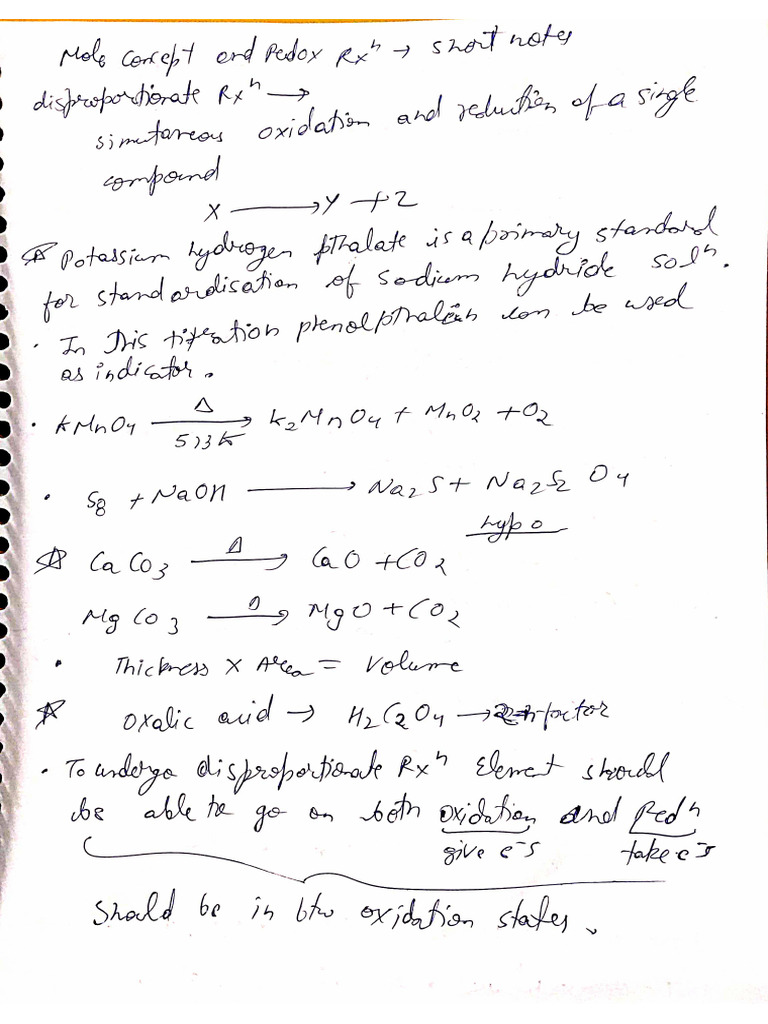 Mole Concept and Redox Rxⁿ → short notes
disproportionate Rxⁿ →
simutaneous oxidation and reduction of a single
compound
X → Y + Z
☆ Potassium hydrogen pthalate is a primary standard
for standardisation of sodium hydride solⁿ.
· In this titration phenolpthalein can be used
as indicator.
· KMnO4 —Δ/513K→ K2MnO4 + MnO2 + O2
· S8 + NaOH → Na2S + Na2S2O4
hypo
☆ CaCO3 —Δ→ CaO + CO2
MgCO3 —Δ→ MgO + CO2
· Thickness × Area = Volume
☆ Oxalic acid → H2C2O4 → n-factor
· To undergo disproportionate Rxⁿ Element should
be able to go on both oxidation and Redⁿ
give e⁻s take e⁻s
Should be in btw oxidation states.